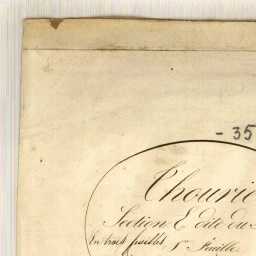 - 35
Chouri
Section E dite du
En trois feuilles 1re Feuille